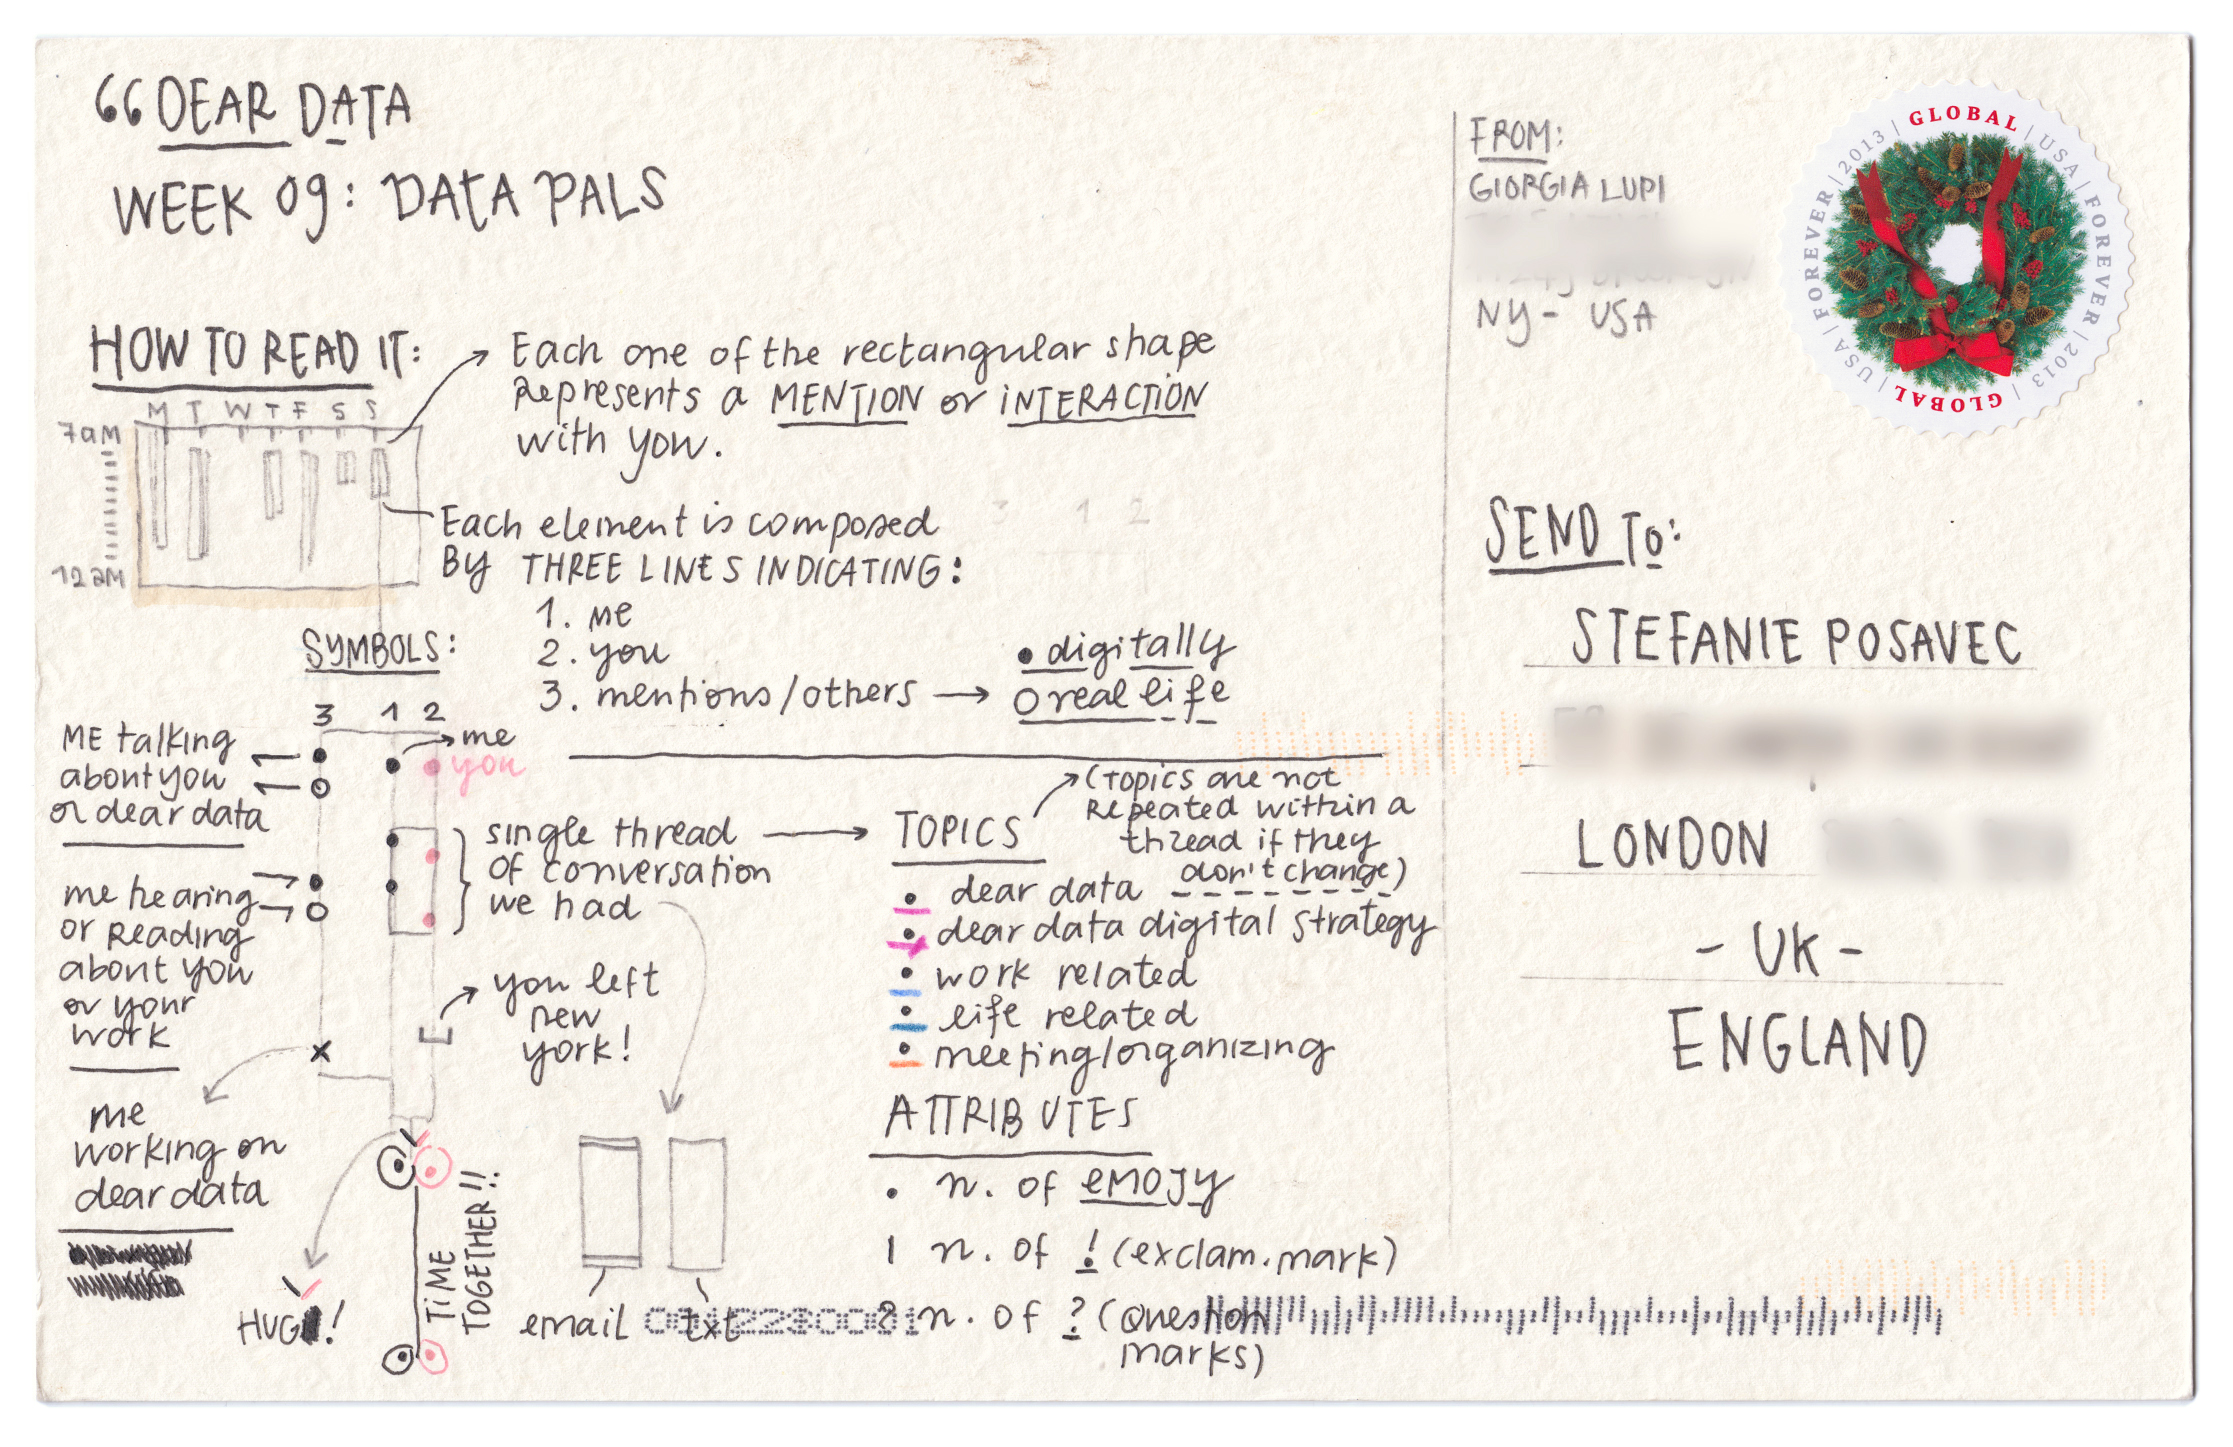 66 DEAR DATA
WEEK 09: DATA PALS
HOW TO READ IT:
M T W T F S S
7am
12am
Each one of the rectangular shape
Represents a MENTION or INTERACTION
with you.
Each element is composed
BY THREE LINES INDICATING:
1. me
2. you
3. mentions/others → 
• digitally
O real life
3 1 2
SYMBOLS:
3 1 2
me
you
ME talking
about you
or dear data
me hearing
or Reading
about you
or your
work
me
working on
dear data
HUG!
single thread
of conversation
we had
you left
new
york!
TIME
TOGETHER!!
email
txt
TOPICS
(Topics are not
Repeated within a
thread if they
don't change)
• dear data
• dear data digital strategy
• work related
• life related
• meeting/organizing
ATTRIBUTES
• n. of emojy
| n. of ! (exclam. mark)
? n. of ? (question
marks)
FROM:
GIORGIA LUPI
NY - USA
GLOBAL | USA | FOREVER | 2013 | GLOBAL | USA | FOREVER | 2013 |
SEND TO:
STEFANIE POSAVEC
LONDON
- UK -
ENGLAND